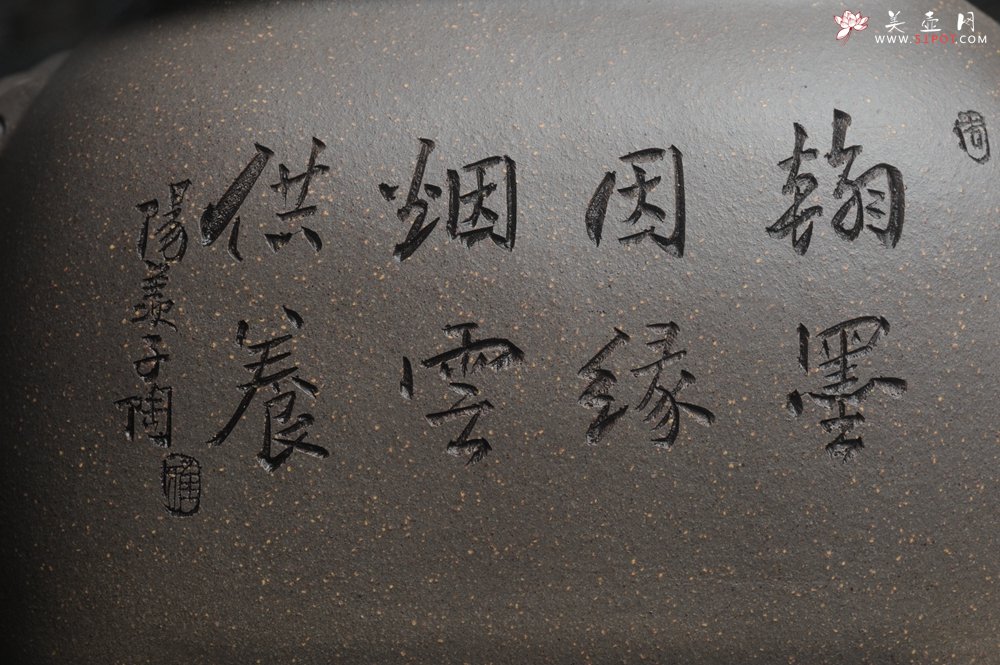 美壶网
WWW.51POT.COM
翰墨
因缘
烟雲
供養
陽羨子陶